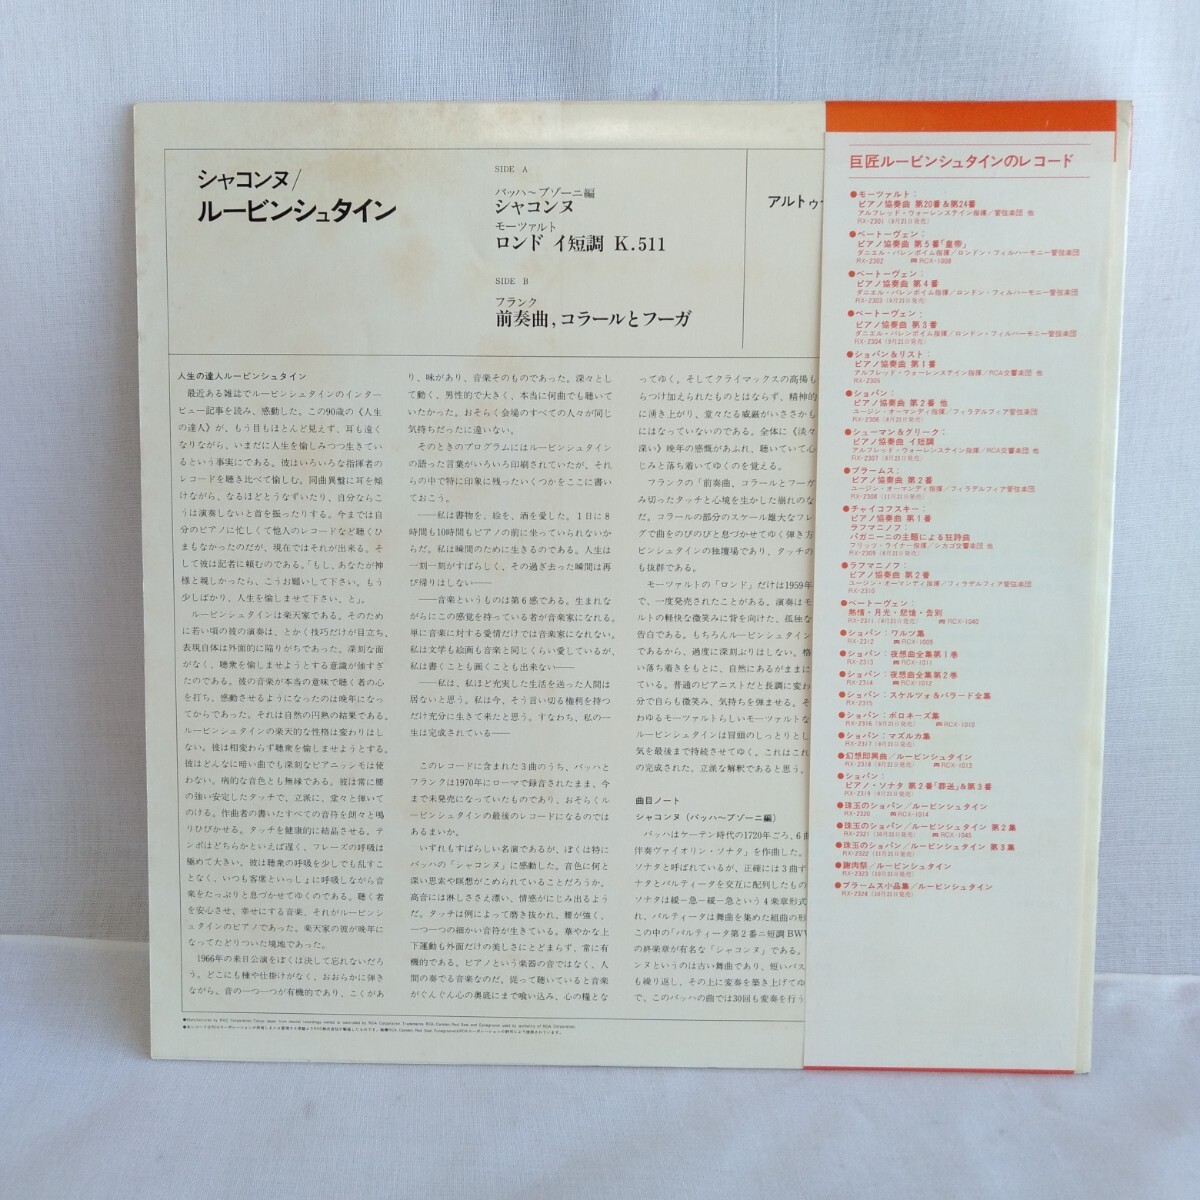 シャコンヌ/
ルービンシュタイン
SIDE A
バッハ～ブゾーニ編
シャコンヌ
モーツァルト
ロンド イ短調 K.511
SIDE B
フランク
前奏曲，コラールとフーガ
アルトゥー
人生の達人ルービンシュタイン
最近ある雑誌でルービンシュタインのインタ
ビュー記事を読み、感動した。この90歳の《人生
の達人》が、もう目もほとんど見えず、耳も遠く
なりながら、いまだに人生を愉しみつつ生きてい
るという事実にである。彼はいろいろな指揮者の
レコードを聴き比べて愉しむ。同曲異盤に耳を傾
けながら、なるほどとうなずいたり、自分ならこ
うは演奏しないと首を振ったりする。今までは自
分のピアノに忙しくて他人のレコードなど聴くひ
まもなかったのだが、現在ではそれが出来る。そ
して彼は記者に頼むのである。「もし、あなたが神
様と親しかったら、こうお願いして下さい。もう
少しばかり、人生を愉しませて下さい、と」。
ルービンシュタインは楽天家である。そのため
に若い頃の彼の演奏は、とかく技巧だけが目立ち、
表現自体は外面的に陥りがちであった。深刻な面
がなく、聴衆を愉しませようとする意識が強すぎ
たのである。彼の音楽が本当の意味で聴く者の心
を打ち、感動させるようになったのは晩年になっ
てからであった。それは自然の円熟の結果である。
ルービンシュタインの楽天的な性格は変わりはし
ない。彼は相変わらず聴衆を愉しませようとする。
彼はどんなに暗い曲でも深刻なピアニッシモは使
わない。病的な音色とも無縁である。彼は常に腰
の強い安定したタッチで、立派に、堂々と弾いて
のける。作曲者の書いたすべての音符を朗々と鳴
りひびかせる。タッチを健康的に結晶させる。テ
ンポはどちらかといえば遅く、フレーズの呼吸は
極めて大きい。彼は聴衆の呼吸を少しでも乱すこ
となく、いつも客席といっしょに呼吸しながら音
楽をたっぷりと息づかせてゆくのである。聴く者
を安心させ、幸せにする音楽、それがルービンシ
ュタインのピアノであった。楽天家の彼が晩年に
なってたどりついた境地であった。
1966年の来日公演をぼくは決して忘れないだろ
う。どこにも種や仕掛けがなく、おおらかに弾き
ながら、音の一つ一つが有機的であり、こくがあ
り、味があり、音楽そのものであった。深々とし
て動く、男性的で大きく、本当に何曲でも聴いて
いたかった。おそらく会場のすべての人々が同じ
気持ちだったに違いない。
そのときのプログラムにはルービンシュタイン
の語った言葉がいろいろ印刷されていたが、それ
らの中で特に印象に残ったいくつかをここに書い
ておこう。
――私は書物を、絵を、酒を愛した。1日に8
時間も10時間もピアノの前に坐っていられないか
らだ。私は瞬間のために生きるのである。人生は
一刻一刻がすばらしく、その過ぎ去った瞬間は再
び帰りはしない――
――音楽というものは第6感である。生まれな
がらにこの感覚を持っている者が音楽家になれる。
単に音楽に対する愛情だけでは音楽家になれない。
私は文学も絵画も音楽と同じくらい愛しているが、
私は書くことも画くことも出来ない――
――私は、私ほど充実した生活を送った人間は
居ないと思う。私は今、そう言い切る権利を持つ
だけ充分に生きて来たと思う。すなわち、私の一
生は完成されている――
このレコードに含まれた3曲のうち、バッハと
フランクは1970年にローマで録音されたまま、今
まで未発売になっていたものであり、おそらくル
ービンシュタインの最後のレコードになるのでは
あるまいか。
いずれもすばらしい名演であるが、ぼくは特に
バッハの「シャコンヌ」に感動した。音色に何と
深い思索や瞑想がこめられていることだろうか。
高音には淋しささえ漂い、情感がにじみ出るよう
だ。タッチは例によって磨き抜かれ、腰が強く、
一つ一つの細かい音符が生きている。華やかな上
下運動も外面だけの美しさにとどまらず、常に有
機的である。ピアノという楽器の音ではなく、人
間の奏でる音楽なのだ。従って聴いていると音楽
がぐんぐん心の奥底にまで喰い込み、心の糧とな
ってゆく。そしてクライマックスの高揚も
らつけ加えられたものとはならず、精神的
に湧き上がり、堂々たる威厳がいささかも
にはなっていないのである。全体に《淡々
深い》晩年の感慨があふれ、聴いていて心
じみと落ち着いてゆくのを覚える。
フランクの「前奏曲、コラールとフーガ
み切ったタッチと心境を生かした崩れのな
だ。コラールの部分のスケール雄大なフレ
グで曲をのびのびと息づかせてゆく弾き方
ビンシュタインの独壇場であり、タッチの
も抜群である。
モーツァルトの「ロンド」だけは1959年
で、一度発売されたことがある。演奏はモ
ルトの軽快な微笑みに背を向けた、孤独な
告白である。もちろんルービンシュタイン
であるから、過度に深刻ぶりはしない。格
い落ち着きをもとに、自然にあるがままに
ている。普通のピアニストだと長調に変わ
分で自らも微笑み、気持ちを弾ませる。そ
わゆるモーツァルトらしいモーツァルトな
ルービンシュタインは冒頭のしっとりとし
気を最後まで持続させてゆく。これはこれ
の完成された、立派な解釈であると思う。
曲目ノート
シャコンヌ（バッハ～ブゾーニ編）
バッハはケーテン時代の1720年ごろ、6曲
伴奏ヴァイオリン・ソナタ」を作曲した。
ソナタと呼ばれているが、正確には3曲ず
ナタとパルティータを交互に配列したもの
ソナタは緩―急―緩―急という4楽章形式
れ、パルティータは舞曲を集めた組曲の形
この中の「パルティータ第2番ニ短調 BWV
の終楽章が有名な「シャコンヌ」である。
ンヌというのは古い舞曲であり、短いバス
も繰り返し、その上に変奏を築き上げてゆ
で、このバッハの曲では30回も変奏を行う
巨匠ルービンシュタインのレコード
●モーツァルト：
ピアノ協奏曲 第20番&第24番
アルフレッド・ウォーレンステイン指揮/管弦楽団 他
RX-2301（8月21日発売）
●ベートーヴェン：
ピアノ協奏曲 第5番「皇帝」
ダニエル・バレンボイム指揮/ロンドン・フィルハーモニー管弦楽団
RX-2302 RCX-1008
●ベートーヴェン：
ピアノ協奏曲 第4番
ダニエル・バレンボイム指揮/ロンドン・フィルハーモニー管弦楽団
RX-2303（8月21日発売）
●ベートーヴェン：
ピアノ協奏曲 第3番
ダニエル・バレンボイム指揮/ロンドン・フィルハーモニー管弦楽団
RX-2304（9月21日発売）
●ショパン&リスト：
ピアノ協奏曲 第1番
アルフレッド・ウォーレンステイン指揮/RCA交響楽団 他
RX-2305
●ショパン：
ピアノ協奏曲 第2番 他
ユージン・オーマンディ指揮/フィラデルフィア管弦楽団
RX-2306（8月21日発売）
●シューマン&グリーク：
ピアノ協奏曲 イ短調
アルフレッド・ウォーレンステイン指揮/RCA交響楽団
RX-2307（9月21日発売）
●ブラームス：
ピアノ協奏曲 第2番
ユージン・オーマンディ指揮/フィラデルフィア管弦楽団
RX-2308（11月21日発売）
●チャイコフスキー：
ピアノ協奏曲 第1番
ラフマニノフ：
パガニーニの主題による狂詩曲
フリッツ・ライナー指揮/シカゴ交響楽団 他
RX-2309（9月21日発売）
●ラフマニノフ：
ピアノ協奏曲 第2番
ユージン・オーマンディ指揮/フィラデルフィア管弦楽団
RX-2310
●ベートーヴェン：
熱情・月光・悲愴・告別
RX-2311（8月21日発売） RCX-1040
●ショパン：ワルツ集
RX-2312 RCX-1009
●ショパン：夜想曲全集第1巻
RX-2313 RCX-1011
●ショパン：夜想曲全集第2巻
RX-2314 RCX-1012
●ショパン：スケルツォ&バラード全集
RX-2315
●ショパン：ポロネーズ集
RX-2316（9月21日発売） RCX-1010
●ショパン：マズルカ集
RX-2317（8月21日発売）
●幻想即興曲/ルービンシュタイン
RX-2318（8月21日発売） RCX-1013
●ショパン：
ピアノ・ソナタ 第2番「葬送」&第3番
RX-2319（9月21日発売）
●珠玉のショパン/ルービンシュタイン
RX-2320 RCX-1014
●珠玉のショパン/ルービンシュタイン 第2集
RX-2321（10月21日発売） RCX-1045
●珠玉のショパン/ルービンシュタイン 第3集
RX-2322（11月21日発売）
●謝肉祭/ルービンシュタイン
RX-2323（10月21日発売）
●ブラームス小品集/ルービンシュタイン
RX-2324（10月21日発売）